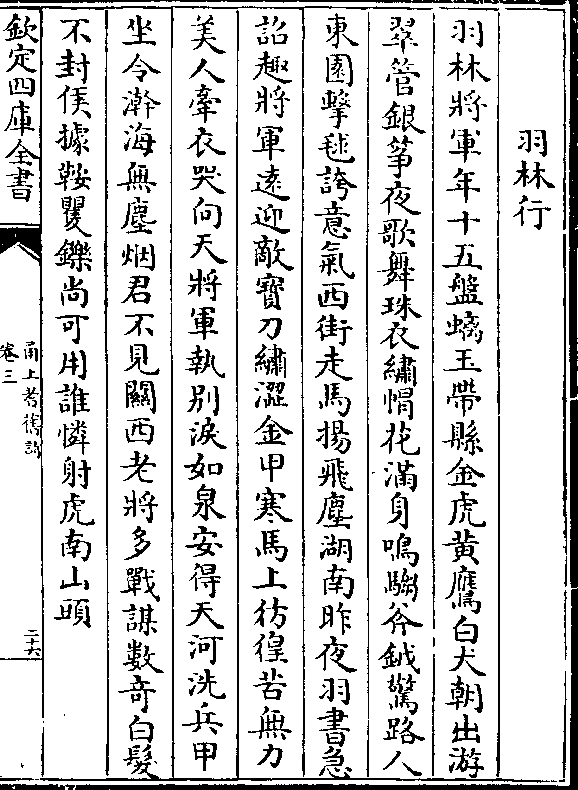 羽林行
羽林將軍年十五盤螭玉帶縣金虎黄鷹白犬朝出游
翠管銀筝夜歌舞珠衣繡帽花滿身鳴騶斧鉞驚路人
東園擊毬誇意氣西街走馬揚飛塵湖南昨夜羽書急
詔趣將軍逺迎敵寶刀繡澀金甲寒馬上彷徨苦無力
美人牽衣哭向天將軍執别淚如泉安得天河洗兵甲
坐令瀚海無塵烟君不見關西老將多戰謀數奇白髮
不封侯據鞍矍鑠尚可用誰憐射虎南山頭
欽定四庫全書
甬上耆舊詩
卷三
二十六